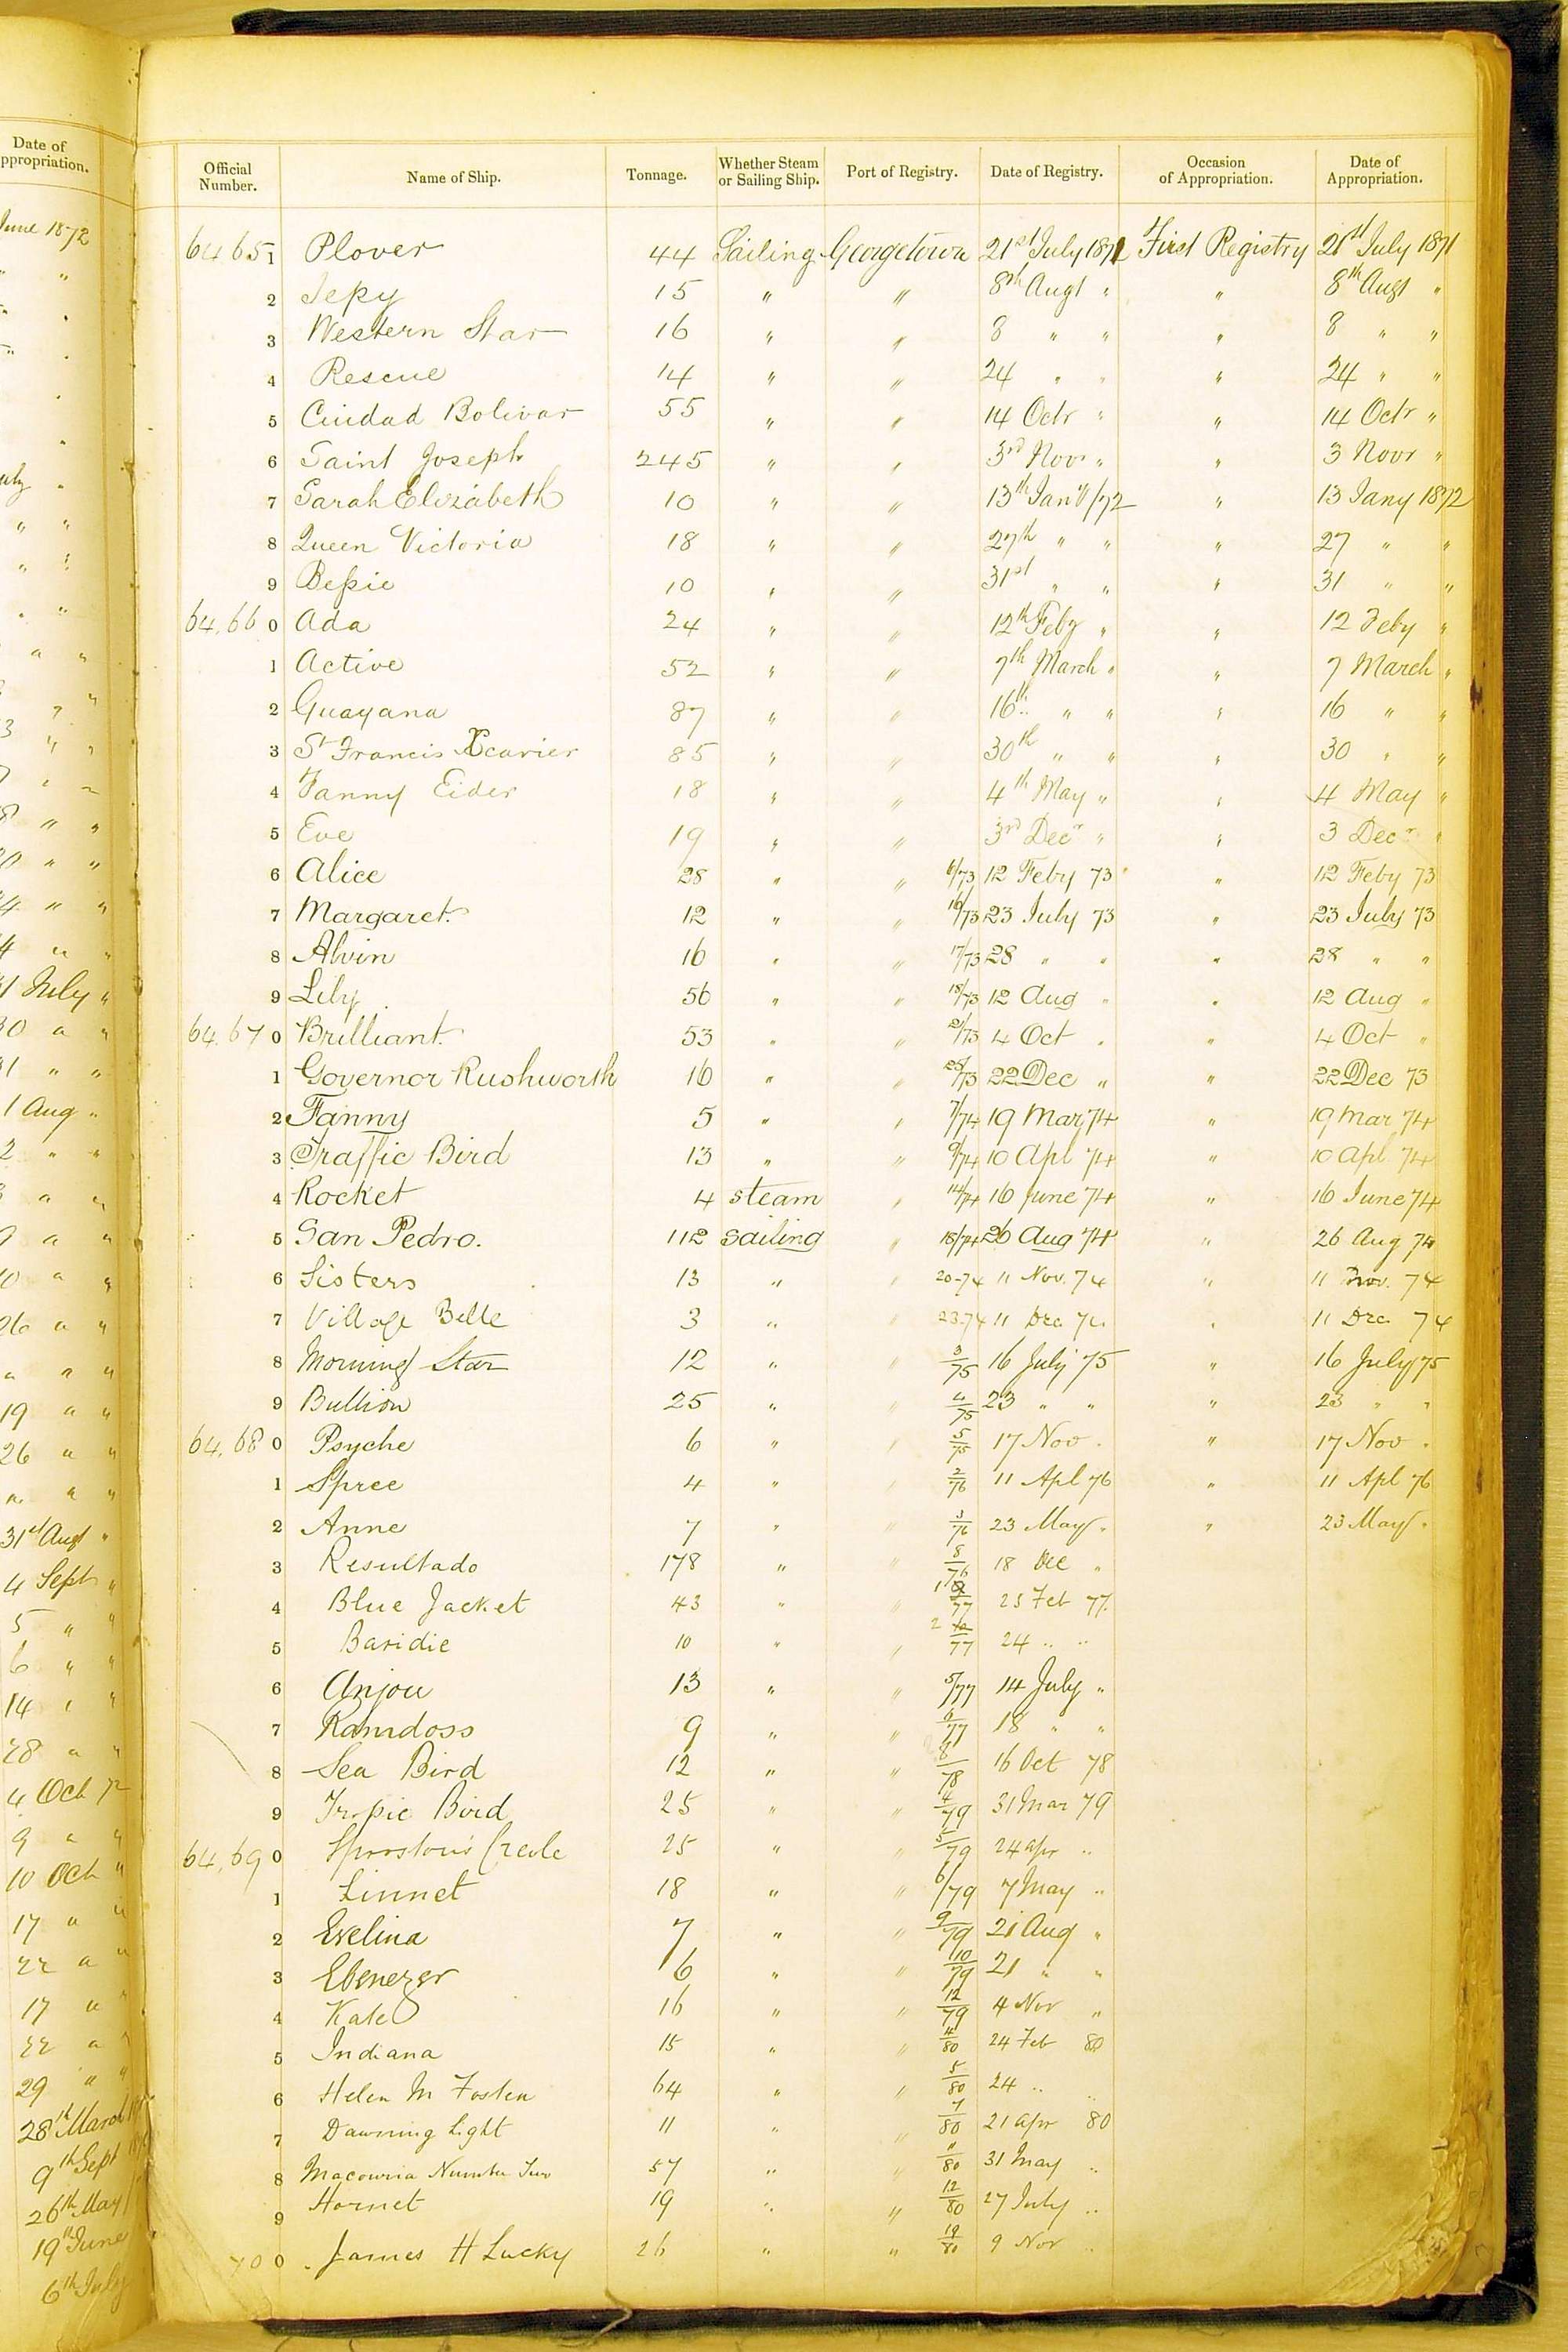 Date of
ppropriation.
June 1872
Official Number. Name of Ship. Tonnage. Whether Steam or Sailing Ship. Port of Registry. Date of Registry. Occasion of Appropriation. Date of Appropriation.
64 65 1 Plover 44 Sailing Georgetown 21st July 1871 First Registry 21st July 1871
2 15 " " 8th Augt " " 8th Augt "
3 Western Star 16 " " 8 " " " 8 " "
4 Rescue 14 " " 24 " " " 24 " "
5 Ciudad Bolivar 55 " " 14 Octr " " 14 Octr "
6 Saint Joseph 245 " " 3rd Novr " " 3 Novr "
7 Sarah Elizabeth 10 " " 13th Jany /72 " 13 Jany 1872
8 Queen Victoria 18 " " 27th " " " 27 " "
9 Bessie 10 " " 31st " " " 31 " "
64.66 0 Ada 24 " " 12th Feby " " 12 Feby "
1 Active 52 " " 7th March " " 7 March "
2 Guayana 87 " " 16th " " " 16 " "
3 St Francis Xavier 85 " " 30th " " " 30 " "
4 Fanny Eider 18 " " 4th May " " 4 May "
5 Eve 19 " " 3rd Decr " " 3 Decr "
6 Alice 28 " " 6/73 12 Feby 73 " 12 Feby 73
7 Margaret. 12 " " 16/73 23 July 73 " 23 July 73
8 Alvin 16 " " 17/73 28 " " " 28 " "
9 Lily 56 " " 18/73 12 Aug " " 12 Aug "
64.67 0 Brilliant. 53 " " 21/73 4 Oct " " 4 Oct "
1 Governor Rushworth 16 " " 25/73 22 Dec " " 22 Dec 73
2 Fanny 5 " " 7/74 19 Mar 74 " 19 Mar 74
3 Traffic Bird 13 " " 9/74 10 Apl 74 " 10 Apl 74
4 Rocket 4 steam " 14/74 16 June 74 " 16 June 74
5 San Pedro. 112 sailing " 18/74 26 Aug 74 " 26 Aug 74
6 Sisters 13 " " 20-74 11 Nov. 74 " 11 Nov. 74
7 Village Belle 3 " " 23-74 11 Dec. 74 " 11 Dec. 74
8 Morning Star 12 " " 3/75 16 July 75 " 16 July 75
9 Bullion 25 " " 4/75 23 " " " 23 " "
64.68 0 Psyche 6 " " 5/75 17 Nov " " 17 Nov "
1 Spree 4 " " 2/76 11 Apl 76 " 11 Apl 76
2 Anne 7 " " 3/76 23 May " " 23 May "
3 Resultado 178 " " 8/76 18 Dec "
4 Blue Jacket 43 " " 1/77 23 Feb 77.
5 Baridie 10 " " 2/77 24 " "
6 Anjou 13 " " 5/77 14 July "
7 Ramdoss 9 " " 6/77 18 " "
8 Sea Bird 12 " " /78 16 Oct 78
9 Tropic Bird 25 " " 4/79 31 Mar 79
64.69 0 Sproston's Creole 25 " " 5/79 24 apr "
1 Linnet 18 " " 6/79 7 May "
2 Evelina 7 " " 9/79 21 Aug "
3 Ebenezer 6 " " 10/79 21 " "
4 Kate 16 " " 12/79 4 Nov "
5 Indiana 15 " " 4/80 24 Feb 80
6 Helen M Foster 64 " " 5/80 24 " "
7 Dawning Light 11 " " 7/80 21 apr 80
8 Macouria Number Two 57 " " 11/80 31 May "
9 Hornet 19 " " 12/80 27 July "
70 0 James H Lucky 26 " " 19/80 9 Nov "
31 July "
1 Aug "
26 " "
19 " "
26 " "
31st Augt "
4 Sept "
5 " "
6 " "
14 " "
28 " "
4 Oct 72
9 " "
10 Oct "
17 " "
22 " "
17 " "
22 " "
29 " "
28th March
9th Sept
26th May
19th June
6th July